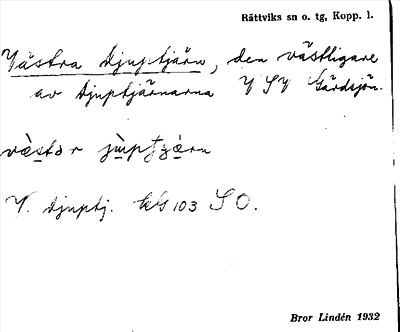 Rättviks sn o. tg, Kopp. l.
Västra Djuptjärn, den västligare
av Djuptjärnarna V S V Gärdsjön.
V. Djuptj. 103 S O.
Bror Lindén 1932